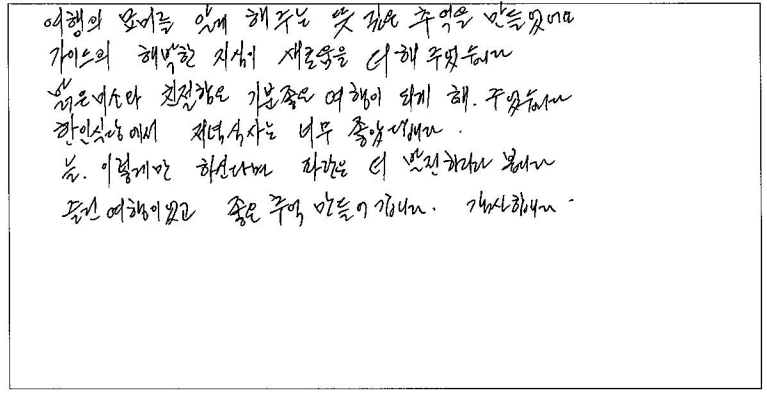 여행의 묘미를 알게 해주는 뜻 깊은 추억을 만들었어요
가이드의 해박한 지식이 새로움을 더해 주었습니다
밝은미소와 친절함은 기분좋은 여행이 되게 해. 주었습니다
한인식당에서 저녁식사는 너무 좋았답니다.
늘. 이렇게만 하신다면 더 발전하리라 봅니다
즐건 여행이었고 좋은 추억 만들어 갑니다. 감사합니다.